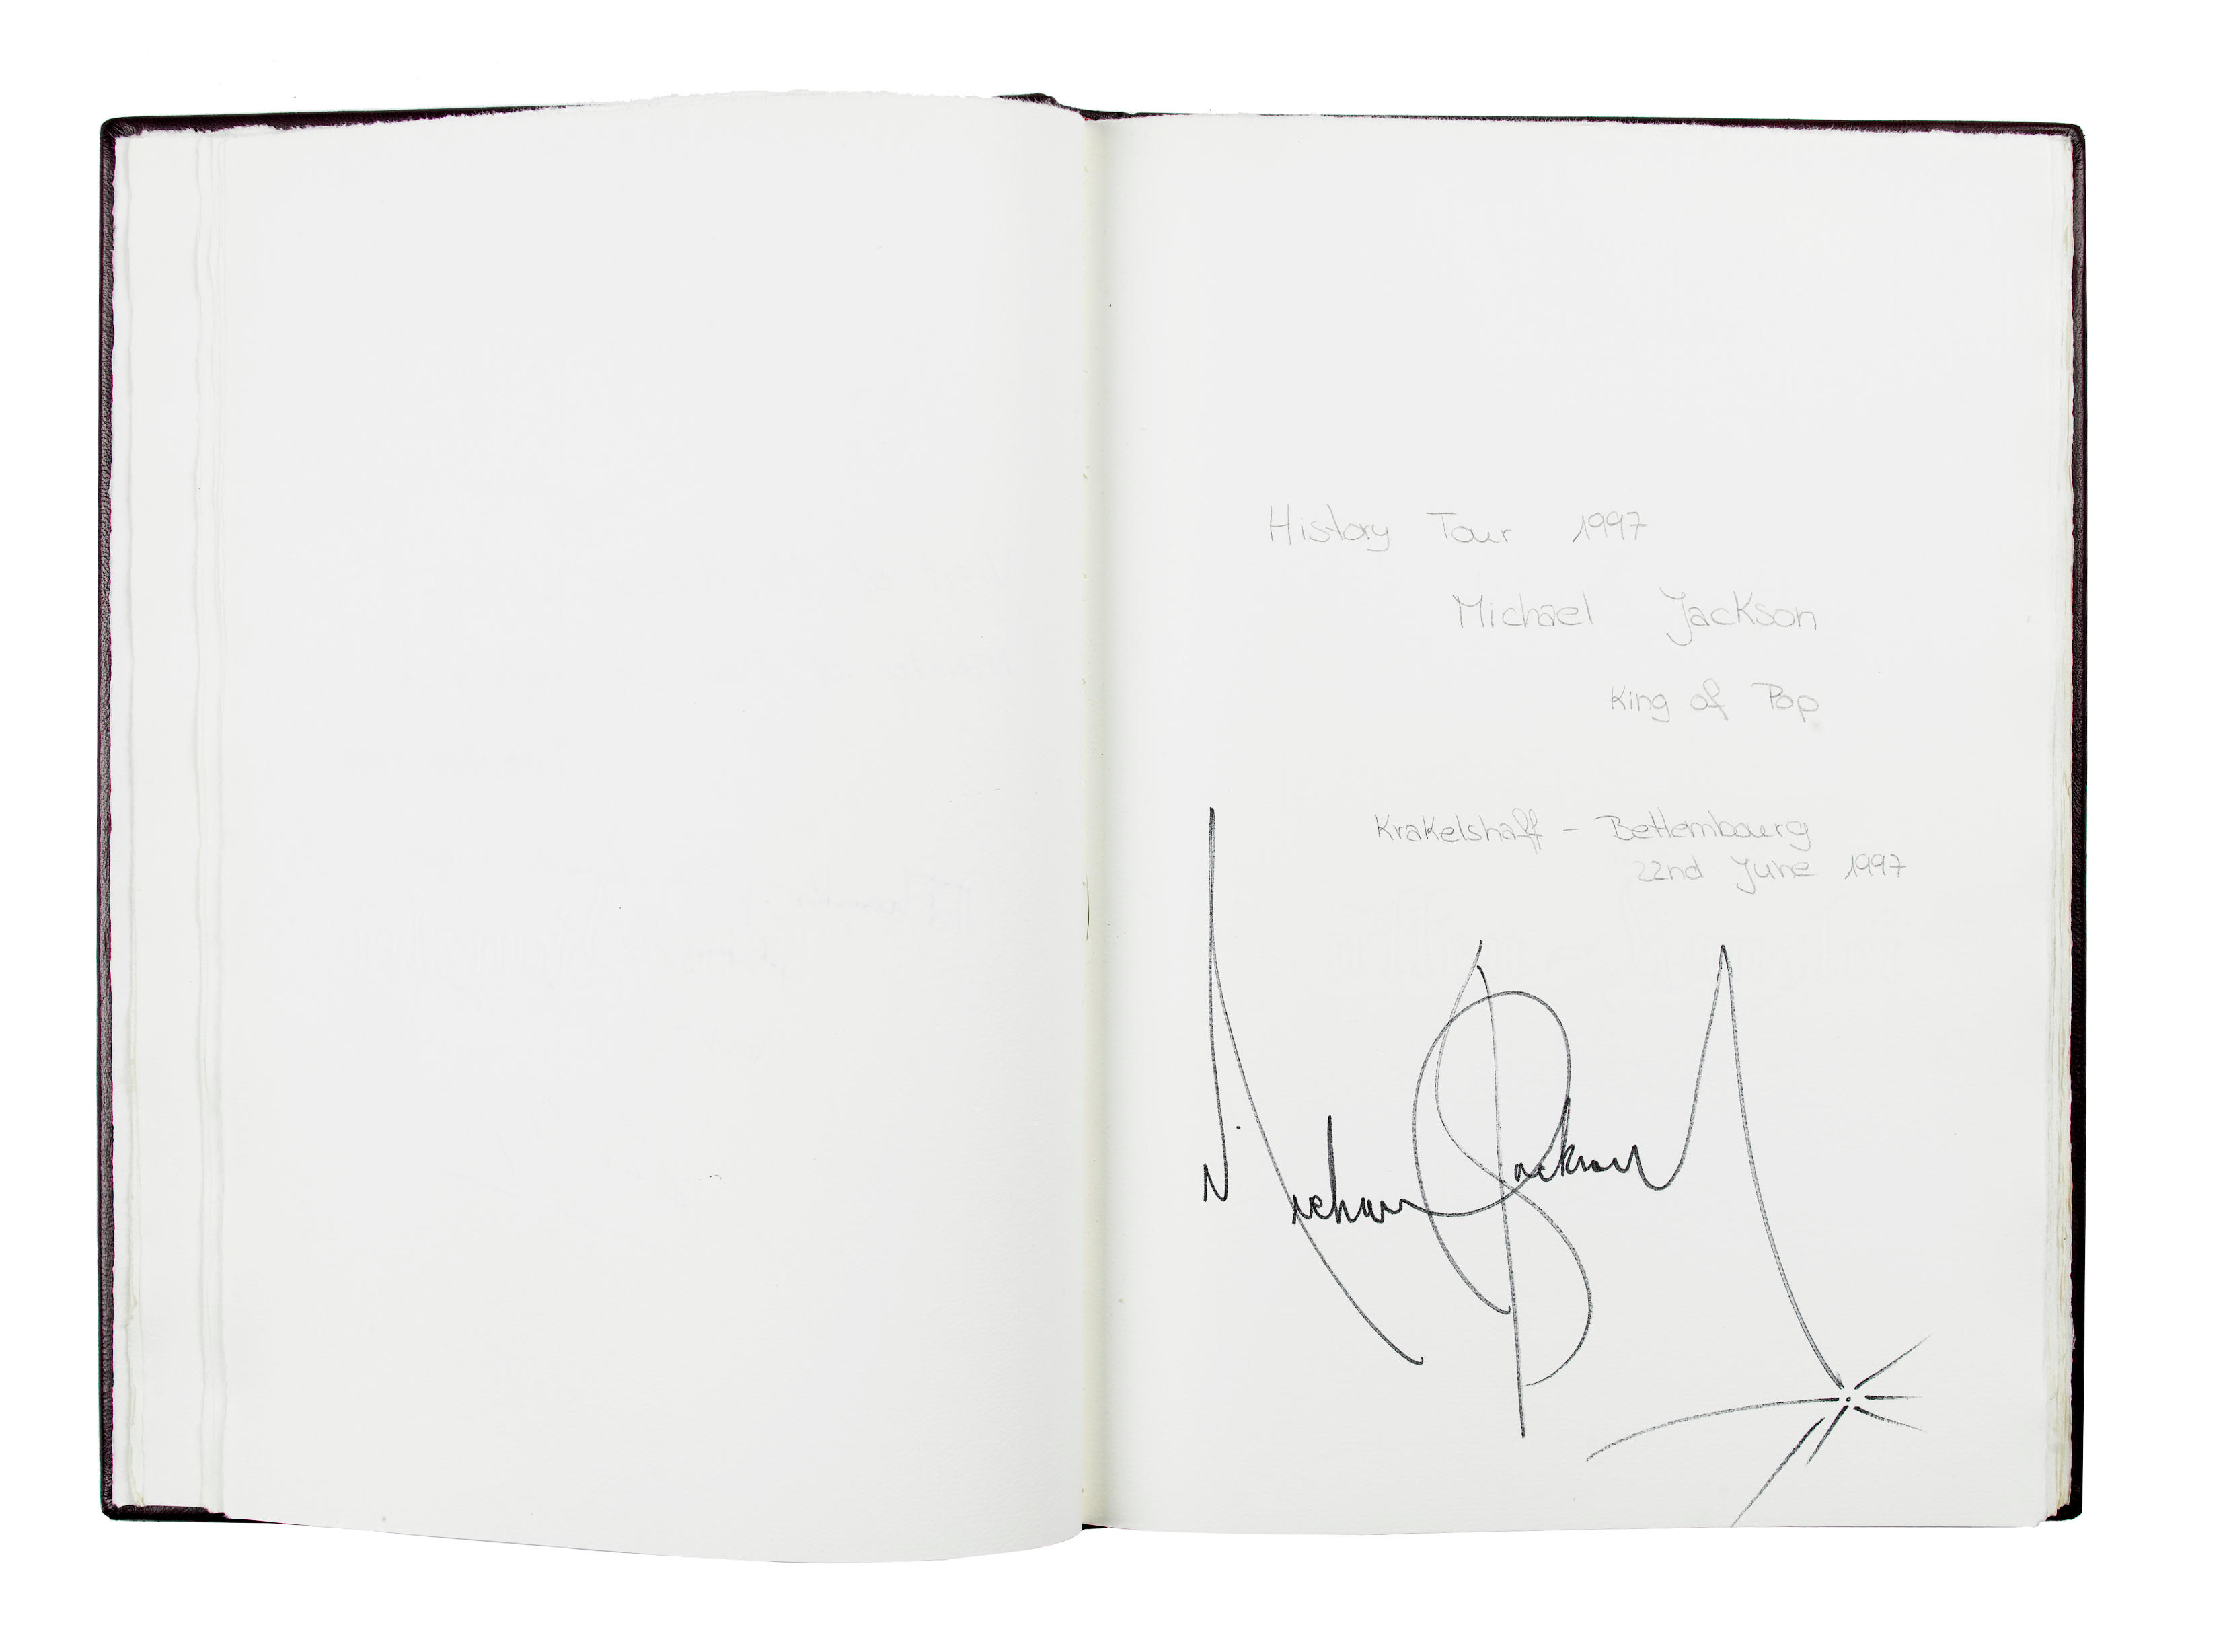 History Tour 1997
Michael Jackson
King of Pop
Krakelshaff - Bettembourg
22nd June 1997
Michael Jackson